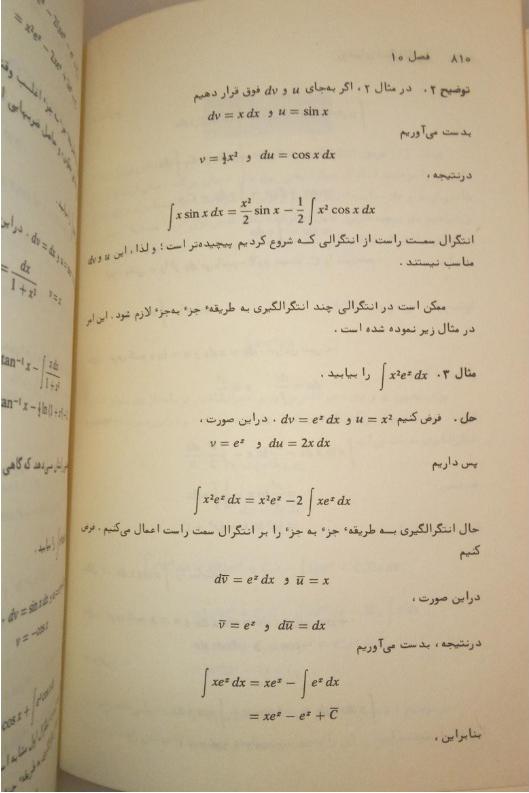 ۸۱۰ فصل ۱۰
توضیح ۲. در مثال ۲، اگر به‌جای u و dv فوق قرار دهیم
dv = x dx و u = sin x
بدست می‌آوریم
v = ½x² و du = cos x dx
درنتیجه،
∫ x sin x dx = x²/2 sin x − 1/2 ∫ x² cos x dx
انتگرال سمت راست از انتگرالی که شروع کردیم پیچیده‌تر است؛ و لذا، این u و dv
مناسب نیستند.
ممکن است در انتگرالی چند انتگرالگیری به طریقهٔ جزء به‌جزء لازم شود. این امر
در مثال زیر نموده شده است.
مثال ۳. ∫ x²eˣ dx را بیابید.
حل. فرض کنیم u = x² و dv = eˣ dx. دراین صورت،
v = eˣ و du = 2x dx
پس داریم
∫ x²eˣ dx = x²eˣ − 2 ∫ xeˣ dx
حال انتگرالگیری به طریقهٔ جزء به جزء را بر انتگرال سمت راست اعمال می‌کنیم. فرض
کنیم
dv̅ = eˣ dx و u̅ = x
دراین صورت،
v̅ = eˣ و du̅ = dx
درنتیجه، بدست می‌آوریم
∫ xeˣ dx = xeˣ − ∫ eˣ dx
= xeˣ − eˣ + C̅
بنابراین،